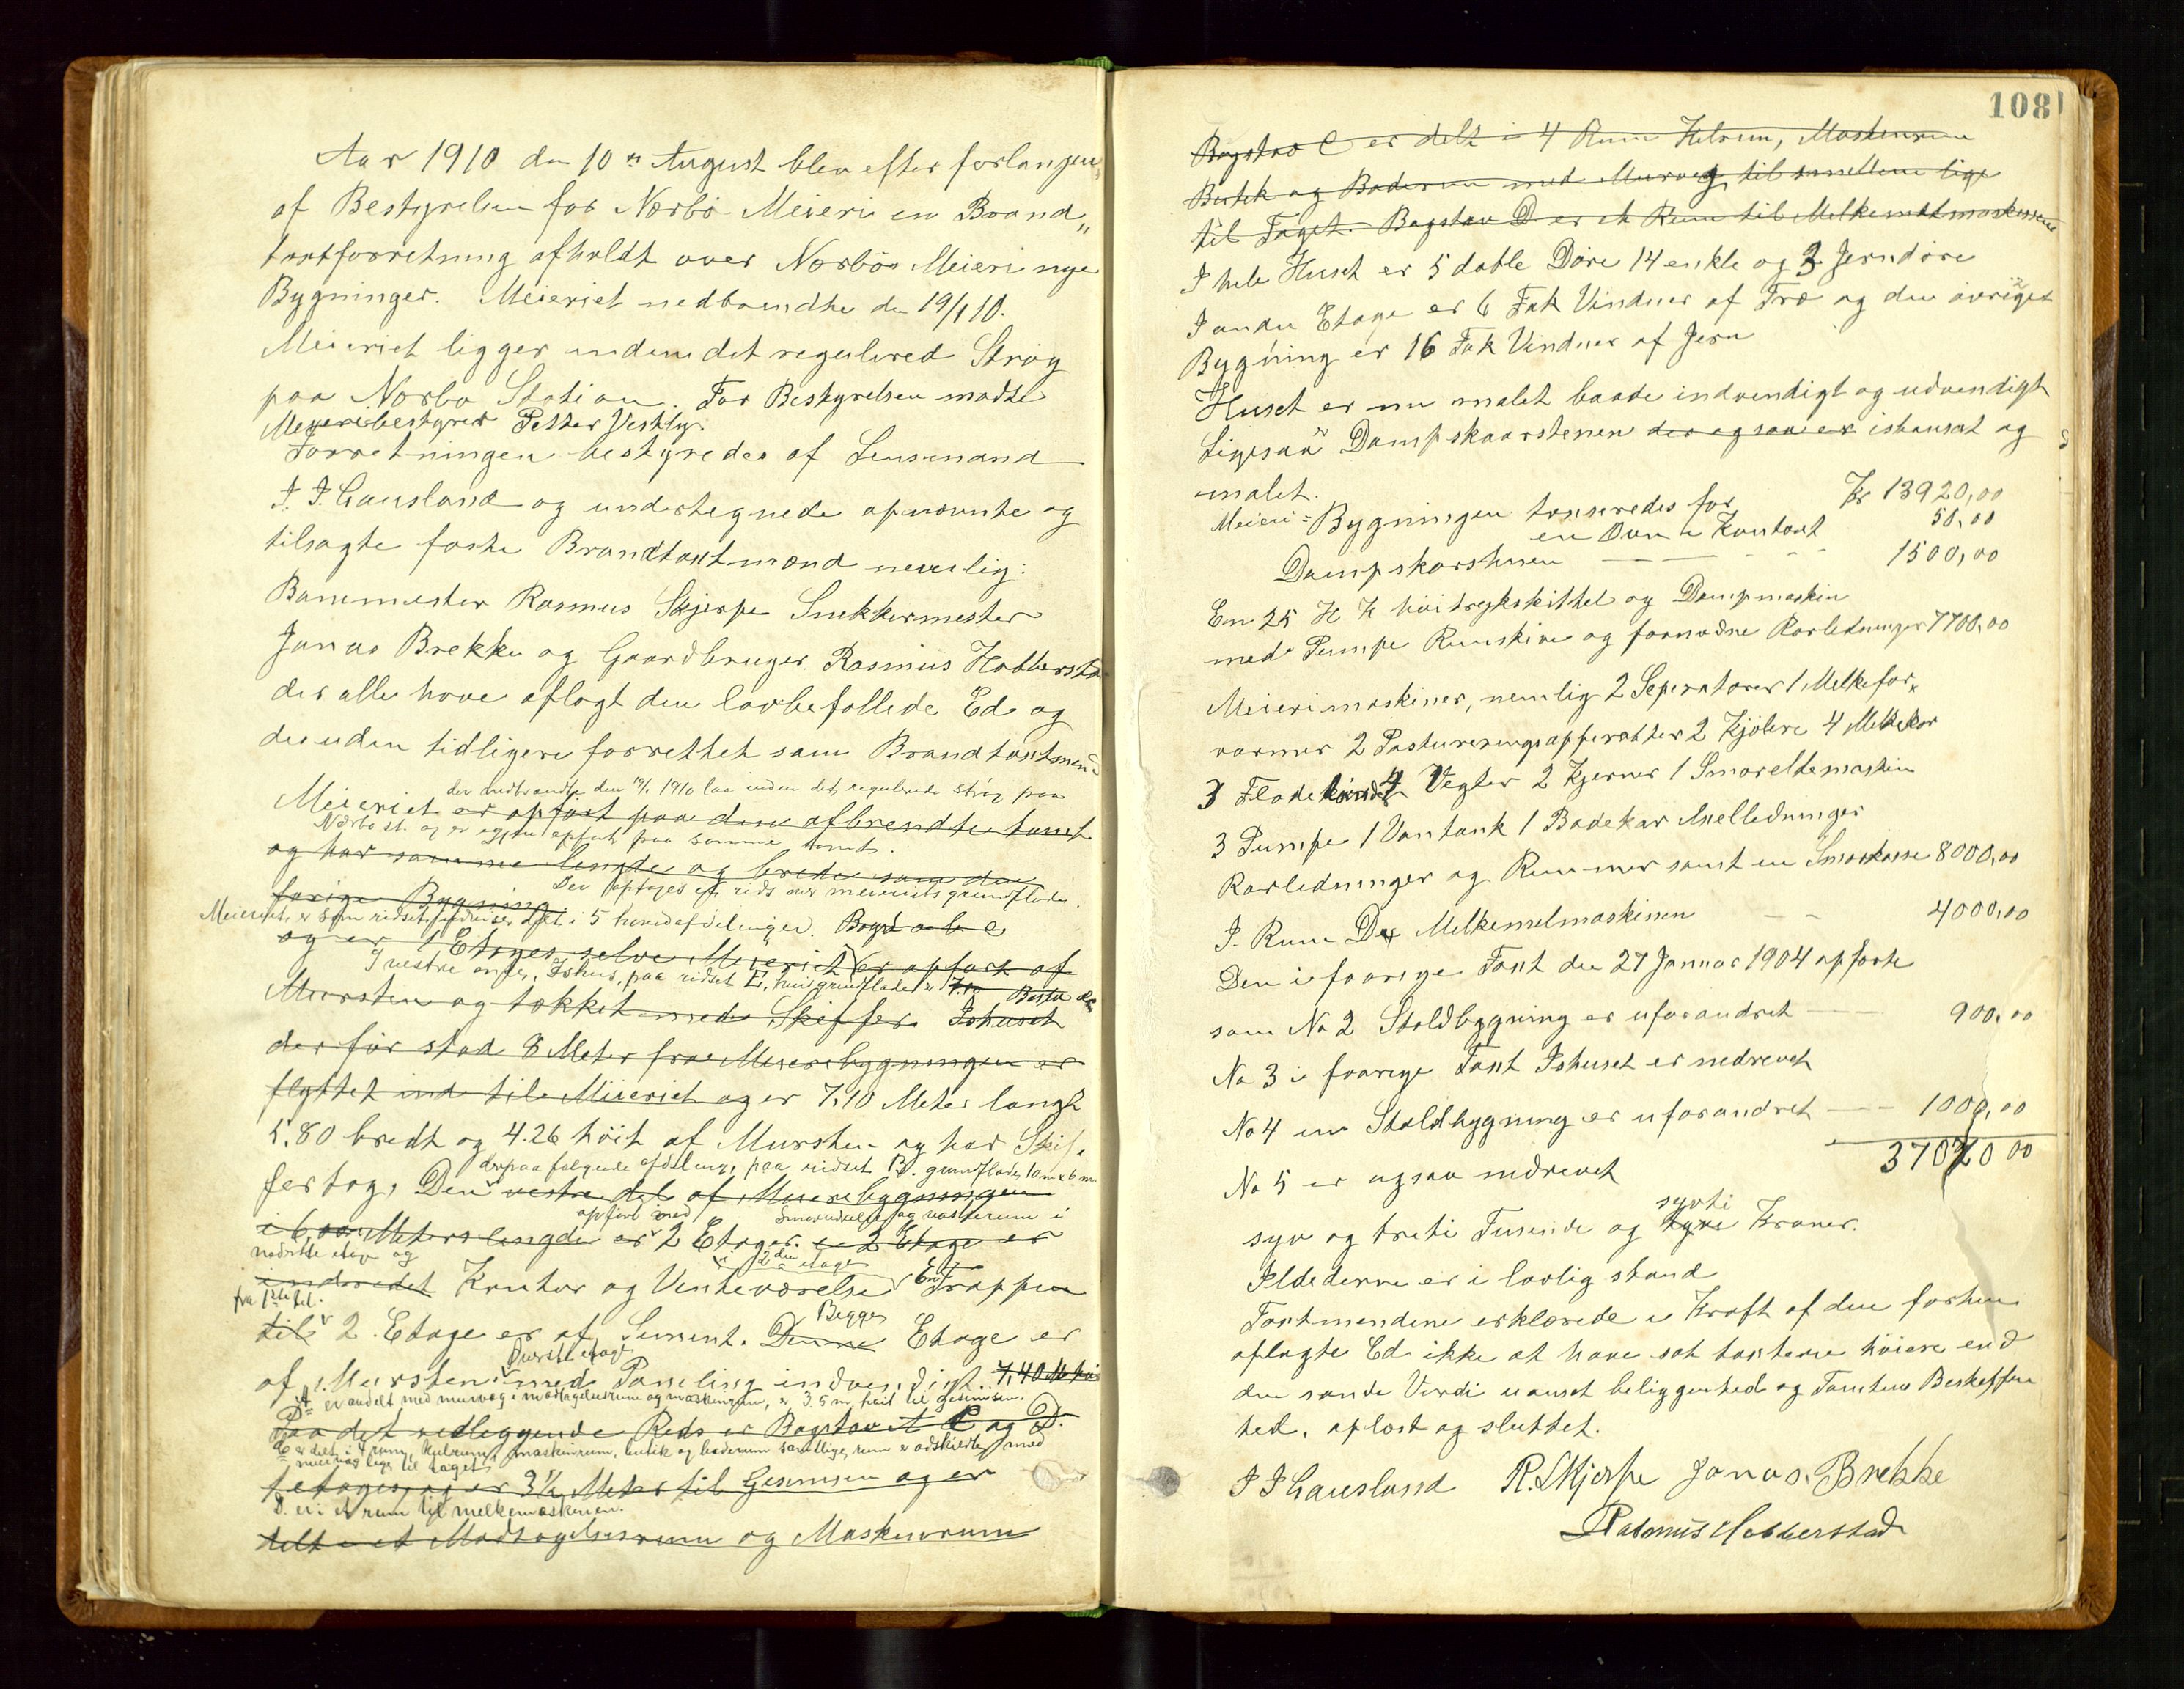 Aar 1910 den 10de August blev efter forlangen
af Bestyrelsen for Nærbø Meieri en Brand„
taxtforretning afholdt over Nærbøs Meieri nye
Bygninger. Meieriet nedbrendte den 19/1 10.
Meieriet ligger inden det regulered Strøg
paa Nærbø Station. For Bestyrelsen mødte
Meyeribestyrer Petter Vestly.
Forretningen bestyredes af Lensmand
J. J. Gausland og undertegnede opnevnte og
tilsagte faste Brandtaxtmænd nemlig:
Banemester Rasmus Skjerpe Snekkermester
Jonas Brekke og Gaardbruger Rasmus Hobberstad
der alle have aflagt den lovbefallede Ed og
desuden tidligere forrettet som Brandtaxtmend
der nedbrændte den 19/1 1910 laa inden det regulerede strøg paa
Meieriet er opført paa den afbrendte tomt
Nærbø st. og er igjen opført paa samme tomt.
og har samme lengde og brede som den
Der optages et rids over meieriets grundflade.
forige Bygning
Meieriet er som ridset udviser delt i 5 hovedafdelinger. Bogst a b c
og er 1 Etages selve Meieriet er opført af
I vestre ende, Ishus, paa ridset E, hvis grundflade er 7.10
Mursten og tækket med Skiffer Ishuset
der før stod 8 Meter fra Meieribygningen er
flyttet ind til Meieriet og er 7,10 Meter langt
5,80 bredt og 4.26 høit af Mursten og har Skif„
derpaa følgende afdeling, paa ridset B. grundflade 10 m x 6 m
fertag, Den vestre del af Meieribygningen
opført med Smørudsalg og vaskerum i
i 6 Meters lengde er 2 Etager. i 2 Etage er
nederste etage og i 2den etage
indredet Kontor og Venteværelse En Trappen
fra 1ste til
til 2. Etage er af Sement. Denne Begge Etage er
Øverste etage
af Mursten med Paneling indvendigt 7,40 M høi
A er avdelt med murvæg i modtagelsesrum og maskinrum, er 3.5 m høit til gesimsen.
Paa det vedleggende Reds er Bogstavet C og D.
C er delt i 4 rum, kulrum, maskinrum, butik og baderum samtlige rum er adskildte med
murvæg lige til taget.
1 etages og er 3½ Meter til Gesimsen og er
D. er i et rum til melkemaskinen.
delt i et Modtagelsesrum og Maskinrum
108
Bogstav C er delt i 4 Rum Kulrum, Maskinrum
Butik og Baderum med Murveg til imellem lige
til Taget. Bogstav D er et Rum til Melkemelmaskinen
I hele Huset er 5 doble Døre 14 enkle og 3 Jerndøre
I anden Etage er 6 Fak Vinduer af Træ og den øvriget
Bygning er 16 Fak Vinduer af Jern
Huset er nu malet baade indvendigt og udvendigt
Ligesaa er Dampskaarstenen der ogsaa er ispuset og
malet.
Meieri= Bygningen taxseredes for Kr 13920,00
en Ovn i Kontoret 50,00
Dampskorstenen — — - - - 1500,00
En 25 H K høitrykskittel og Dampmaskin
med Pumpe Remskive og fornødne Rørledninger 7700,00
Meierimaskiner, nemlig 2 Seperatorer 1 Melkefor„
varmer 2 Pastureringsapperatter 2 Kjølere 4 Melkekar
3 Flødekander 4 Vegter 2 Kjerner 1 Smøreltemaskin
3 Pumpe 1 Vantank 1 Badekar Axelledninger
Rørledninger og Remmer samt en Smørkasse 8000,00
I. Rum D Melkemelmaskinen — — 4000,00
Den i forrige Taxt den 27 Januar 1904 opførte
som No 2 Staldbygning er uforandret — 900,00
No 3 i forrige Taxt Ishuset er nedrevet
No 4 en Staldbygning er uforandret — 1000,00
No 5 er ogsaa nedrevet 37070 00
syv og treti Tusende og tyve sytti Kroner.
Ildederne er i lovlig stand
Taxtmendene erklærede i Kraft af den forhen
aflagte Ed ikke at have sat taxterne høiere end
den sande Verdi uanset beliggenhed og Tomtens Beskaffen
hed. oplæst og sluttet.
J J Gausland R. Skjerpe Jonas. Brekke
Rasmus Hobberstad